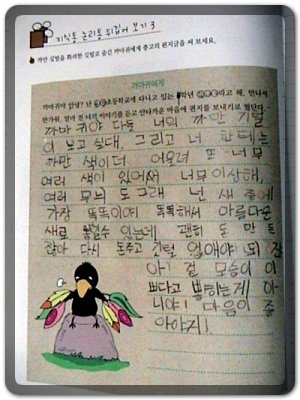 지식통 논리통 뒤집어 보기 3
까만 깃털을 화려한 깃털로 숨긴 까마귀에게 충고의 편지글을 써 보세요.
까마귀에게
까마귀야 안녕? 난 초등학교에 다니고 있는 학년 라고 해. 만나서
반가워. 얼마 전 너의 이야기를 듣고 안타까운 마음에 편지를 보내기로 했단다.
까마귀야 다들 너의 까만 털
이 보고 싶대. 그리고 너 한테는
까만 색이더. 어울려 또 너무
여러 색이 있어서 너무 이상해,
여러 무늬 도 그래. 넌 새 중에
가장 똑똑이야 똑똑해서 아름다운
새로 뽑힐수 있는데, 괜히 도 만
찮아 다시 돈주고 털 없애야 되
아! 겉 모습이 이
쁘다고 뽑히는게 아
니야! 마음이 줄
아야지!